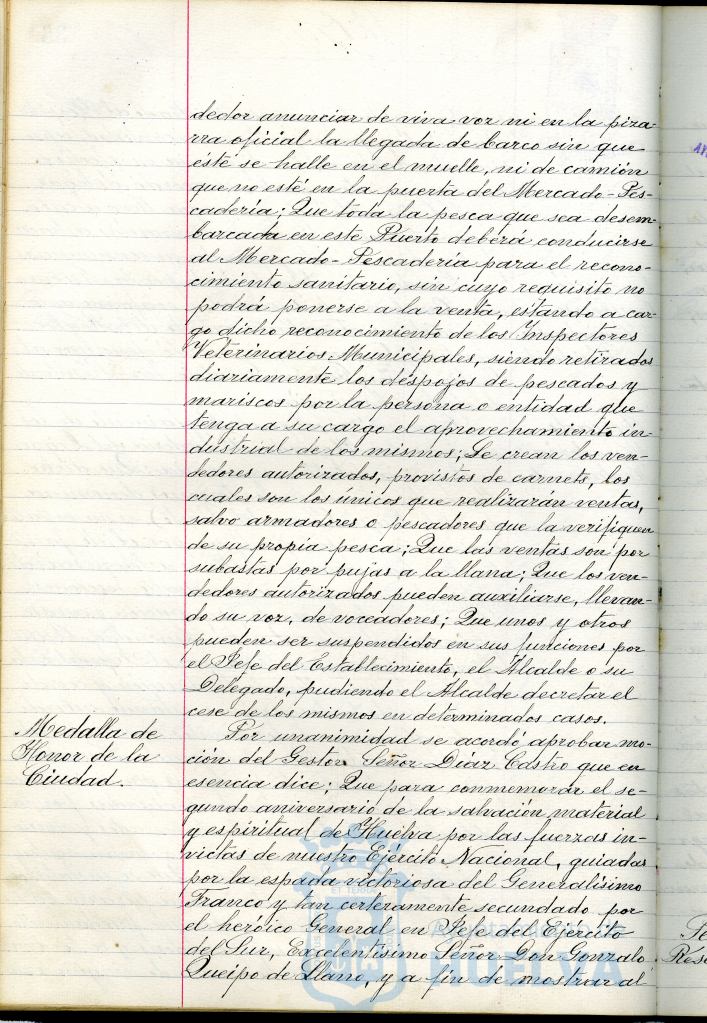 dedor anunciar de viva voz ni en la piza-
rra oficial la llegada de barco sin que
esté se halle en el muelle, ni de camión
que no esté en la puerta del Mercado-Pes-
cadería; Que toda la pesca que sea desem-
barcada en este Puerto deberá conducirse
al Mercado-Pescadería para el recono-
cimiento sanitario, sin cuyo requisito no
podrá ponerse a la venta, estando a car-
go dicho reconocimiento de los Inspectores
Veterinarios Municipales, siendo retirados
diariamente los despojos de pescados y
mariscos por la persona o entidad que
tenga a su cargo el aprovechamiento in-
dustrial de los mismos; Se crean los ven-
dedores autorizados, provistos de carnets, los
cuales son los únicos que realizarán ventas,
salvo armadores o pescadores que la verifiquen
de su propia pesca; Que las ventas son por
subastas por pujas a la llana; Que los ven-
dedores autorizados pueden auxiliarse, llevan-
do su voz, de voceadores; Que unos y otros
pueden ser suspendidos en sus funciones por
el Jefe del Establecimiento, el Alcalde o su
Delegado, pudiendo el Alcalde decretar el
cese de los mismos en determinados casos.
Medalla de
Honor de la
Ciudad.
Por unanimidad se acordó aprobar mo-
ción del Gestor Señor Díaz Castro que en
esencia dice; Que para conmemorar el se-
gundo aniversario de la salvación material
y espiritual de Huelva por las fuerzas in-
victas de nuestro Ejército Nacional, guiadas
por la espada victoriosa del Generalísimo
Franco y tan certeramente secundado por
el heróico General en Jefe del Ejército
del Sur, Excelentísimo Señor Don Gonzalo
Queipo de Llano, y a fin de mostrar al
HUELVA